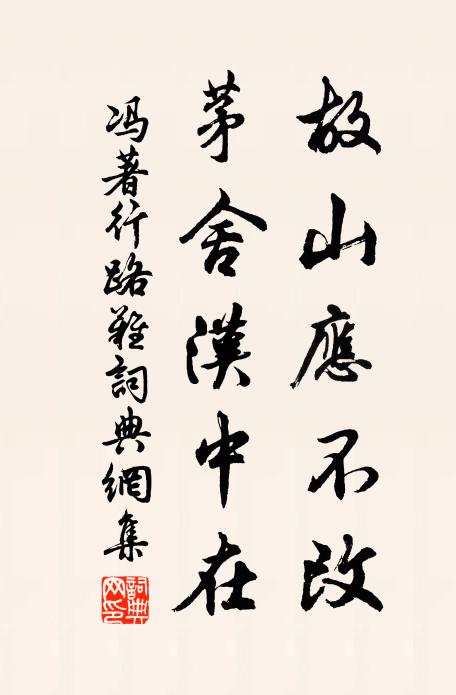 故山應不改
茅舍漢中在
冯著行路難詞典網集
詞典网印